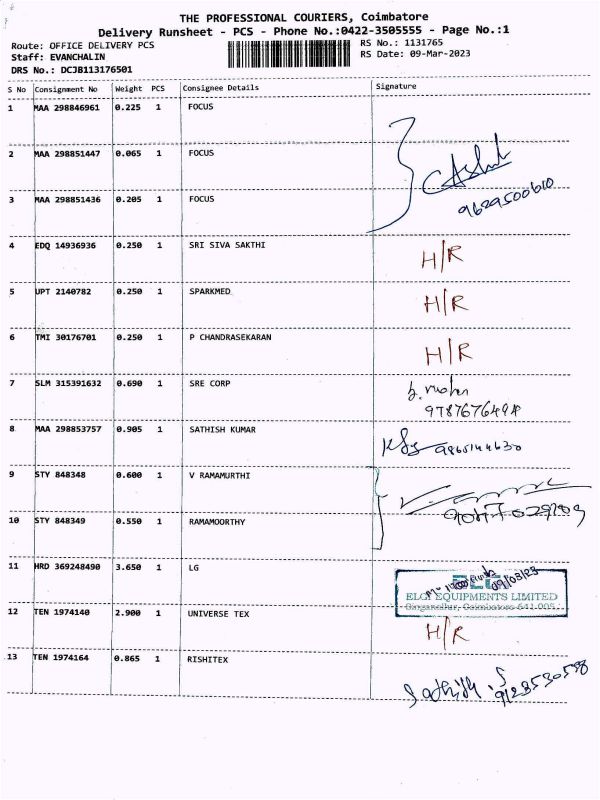 THE PROFESSIONAL COURIERS, Coimbatore
Delivery Runsheet - PCS - Phone No.:0422-3505555 - Page No.:1
Route: OFFICE DELIVERY PCS
RS No.: 1131765
Staff: EVANCHALIN
RS Date: 09-Mar-2023
DRS No.: DCJB113176501
S No Consignment No Weight PCS Consignee Details Signature
1 MAA 298846961 0.225 1 FOCUS
2 MAA 298851447 0.065 1 FOCUS
9629500610
3 MAA 298851436 0.205 1 FOCUS
4 EDQ 14936936 0.250 1 SRI SIVA SAKTHI H/R
5 UPT 2140782 0.250 1 SPARKMED H/R
6 TMI 30176701 0.250 1 P CHANDRASEKARAN H/R
7 SLM 315391632 0.690 1 SRE CORP
8 MAA 298853757 0.905 1 SATHISH KUMAR
9 STY 848348 0.600 1 V RAMAMURTHI
10 STY 848349 0.550 1 RAMAMOORTHY
11 HRD 369248490 3.650 1 LG
09/03/23
ELGI EQUIPMENTS LIMITED
Singanallur, Coimbatore 641 005
12 TEN 1974140 2.900 1 UNIVERSE TEX H/R
13 TEN 1974164 0.865 1 RISHITEX
Sathish . S